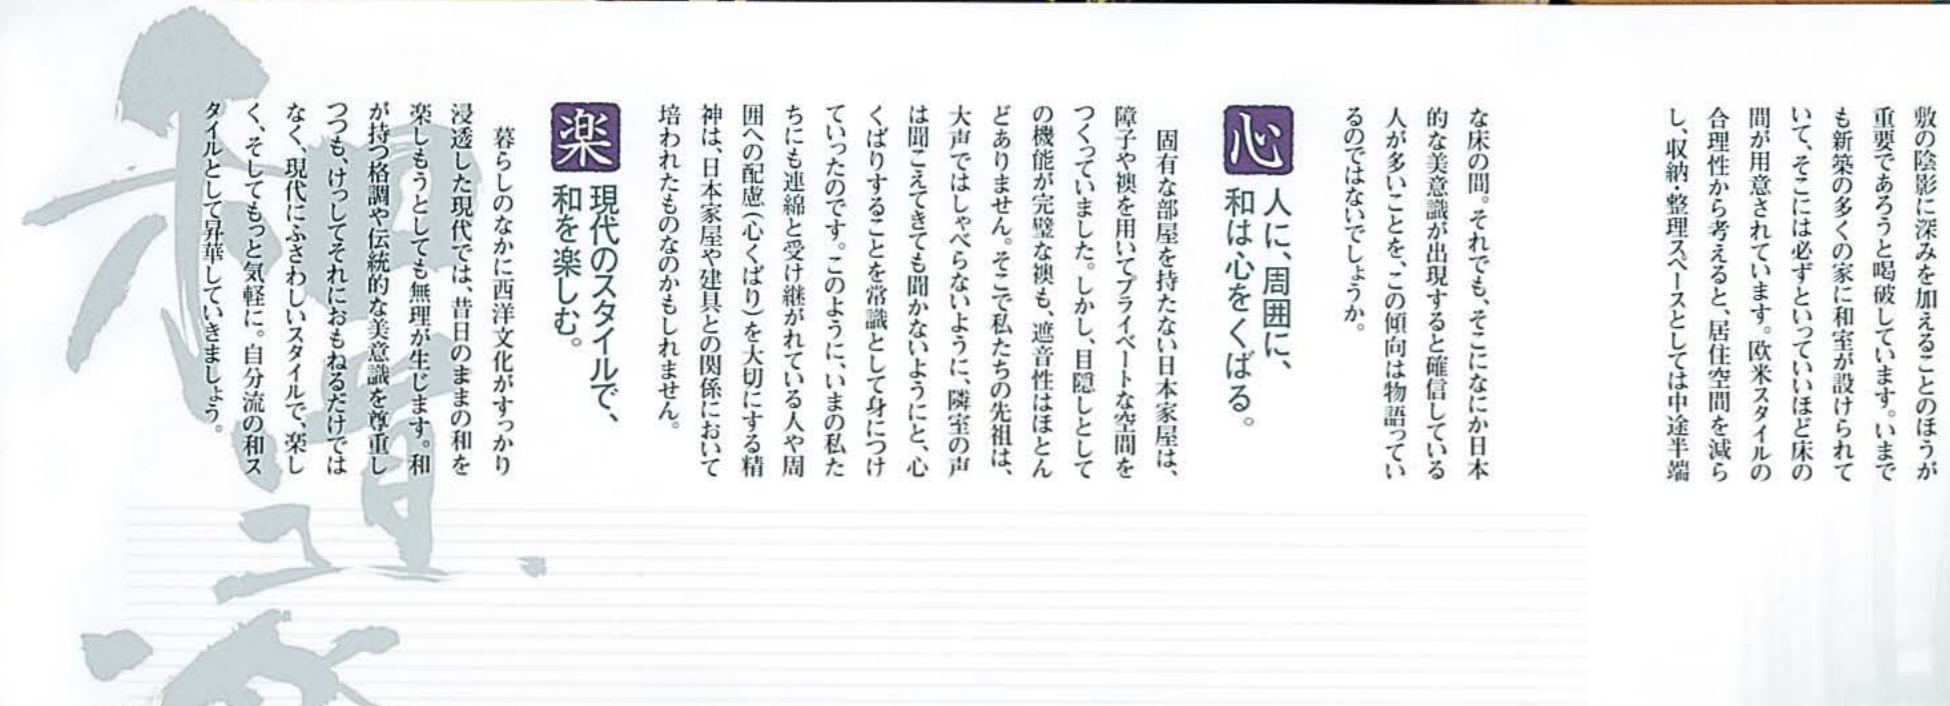 敷の陰影に深みを加えることのほうが
重要であろうと喝破しています。いまで
も新築の多くの家に和室が設けられて
いて、そこには必ずといっていいほど床の
間が用意されています。欧米スタイルの
合理性から考えると、居住空間を減ら
し、収納・整理スペースとしては中途半端
な床の間。それでも、そこになにか日本
的な美意識が出現すると確信している
人が多いことを、この傾向は物語ってい
るのではないでしょうか。
心
人に、周囲に、
和は心をくばる。
固有な部屋を持たない日本家屋は、
障子や襖を用いてプライベートな空間を
つくっていました。しかし、目隠しとして
の機能が完璧な襖も、遮音性はほとん
どありません。そこで私たちの先祖は、
大声ではしゃべらないように、隣室の声
は聞こえてきても聞かないようにと、心
くばりすることを常識として身につけ
ていったのです。このように、いまの私た
ちにも連綿と受け継がれている人や周
囲への配慮(心くばり)を大切にする精
神は、日本家屋や建具との関係において
培われたものなのかもしれません。
楽
現代のスタイルで、
和を楽しむ。
暮らしのなかに西洋文化がすっかり
浸透した現代では、昔日のままの和を
楽しもうとしても無理が生じます。和
が持つ格調や伝統的な美意識を尊重し
つつも、けっしてそれにおもねるだけでは
なく、現代にふさわしいスタイルで、楽し
く、そしてもっと気軽に。自分流の和ス
タイルとして昇華していきましょう。